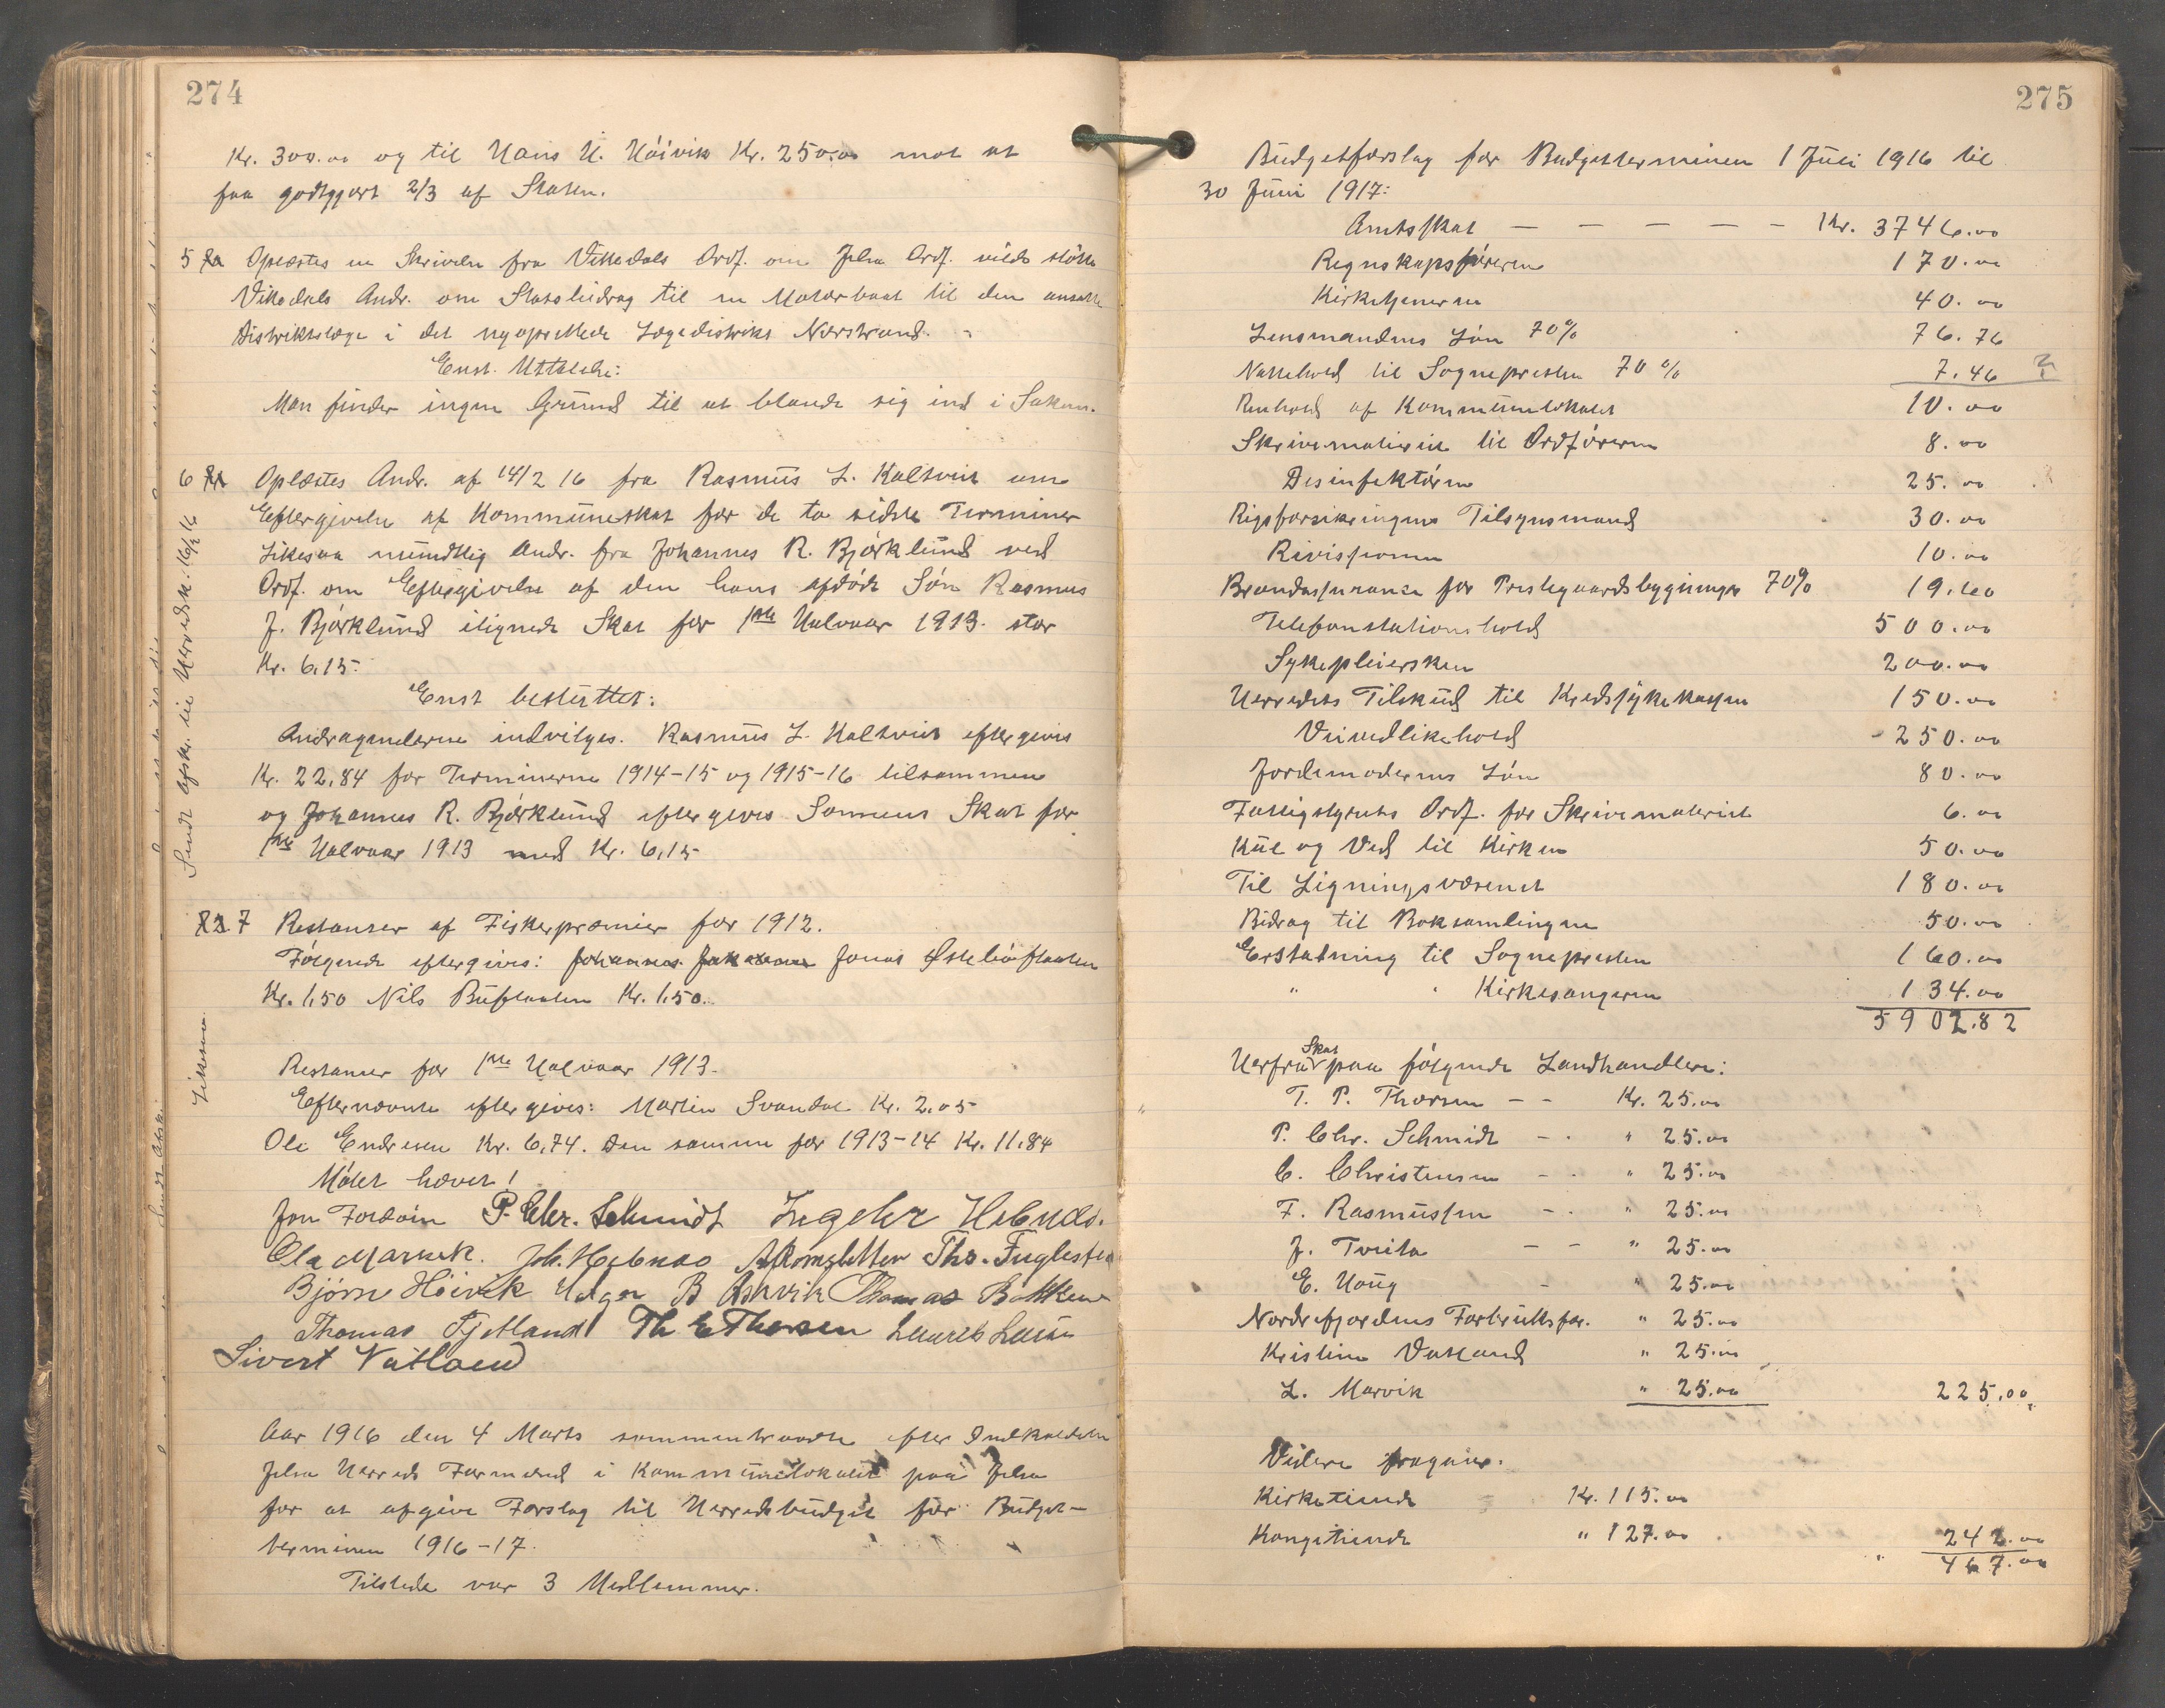 274
Kr. 300.00 og til Hans H. Høivik Kr. 250.00 mot at
faa godtgjort 2/3 af Staten.
5 Oplæstes en Skrivelse fra Vikedals Ordf. om Jelsa Ordf. vilde støtte
Vikedals Andr. om Statsbidrag til en Motorbaat til den ansatte
Distriktslæge i det nyoprettede Lægedistrikt Nærstrand.
Enst. Uttalelse:
Man finder ingen Grund til at blande sig ind i Saken.
6 Oplæstes Andr. af 14/2 16 fra Rasmus L. Kaltveit om
Eftergivelse af Kommuneskat for de to sidste Terminer
Likesaa mundtlig Andr. fra Johannes R. Bjørklund ved
Ordf. om Eftergivelse af den hans afdøde Søn Rasmus
J. Bjørklund ilignede Skat for 1ste Halvaar 1913. stor
Kr. 6,15.
Enst besluttet:
Andragenderne indvilges. Rasmus L. Kaltveit eftergives
Kr. 22,84 for Terminerne 1914-15 og 1915-16 tilsammen
og Johannes R. Bjørklund eftergives Sønnens Skat for
1ste Halvaar 1913 med Kr. 6,15
Sendt Afskr. til Herredsk. 16/3 16
7 Restanser af Fiskerpræmier for 1912.
Følgende eftergives: Johannes Jonas Østebøflaaten
Kr. 1,50 Nils Buflaaten Kr. 1,50.
Likesaa
Restanser for 1ste Halvaar 1913.
Efternævnte eftergives: Martin Svandal Kr. 2.05
Ole Endresen Kr. 6,74. Den samme for 1913-14 Kr. 11,84
Møtet hævet!
Jon Foldøin P. Chr. Schmidt Ingebr Hebnes.
Ola Marvik. Joh. Hebnes Tho. Fuglestein
Bjørne Høivik Helger B Askvik Thomas Bakken
Thomas Fjetland Th E Thorsen Laurits
Sivert Vatland
Aar 1916 den 4 Marts sammentraadte efter Indkaldelse
Jelsa Herreds Formænd i Kommunelokalet paa Jelsa
for at afgive Forslag til Herredsbudget for Budget-
terminen 1916-17.
Tilstede var 3 Medlemmer.
275
Budgetforslag for Budgetterminen 1 Juli 1916 til
30 Juni 1917:
Amtsskat — — — — — Kr. 3746.00
Regnskapsføreren 170.00
Kirketjeneren 40.00
Lensmandens Løn 70% 76.76
Nattehold til Sognepresten 70 % 7.46 ?
Renhold af Kommunelokalet 10.00
Skrivemateriel til Ordføreren 8.00
Desinfektøren 25.00
Rigsforsikringens Tilsynsmand 30.00
Rivisionen 10.00
Brandassurance for Prestegaardsbygninger 70% 19.60
Telefonstationshold 500.00
Sykepleiersken 200.00
Herredets Tilskud til Kredssykekassen 150.00
Veivedlikehold 250.00
Jordemoderens Løn 80.00
Fattigstyrets Ordf. for Skrivemateriel 6.00
Kul og Ved til Kirken 50.00
Til Ligningsvæsenet 180.00
Bidrag til Boksamlingen 50.00
Erstatning til Sognepresten 160.00
" " Kirkesangeren 134.00
5902.82
Herfra Skat paa følgende Landhandlere:
T. P. Thorsen — — Kr. 25.00
P. Chr. Schmidt — - " 25.00
C. Christensen — - " 25.00
F. Rasmussen — - " 25.00
J. Tveita — — " 25.00
E. Houg — " 25.00
Nordrefjordens Forbruksfor. " 25.00
Kristine Vatland " 25.00
L. Marvik " 25.00 225.00
Videre fragaar.
Kirketiende Kr. 115.00
Kongetiende " 127.00 242.00
467.00